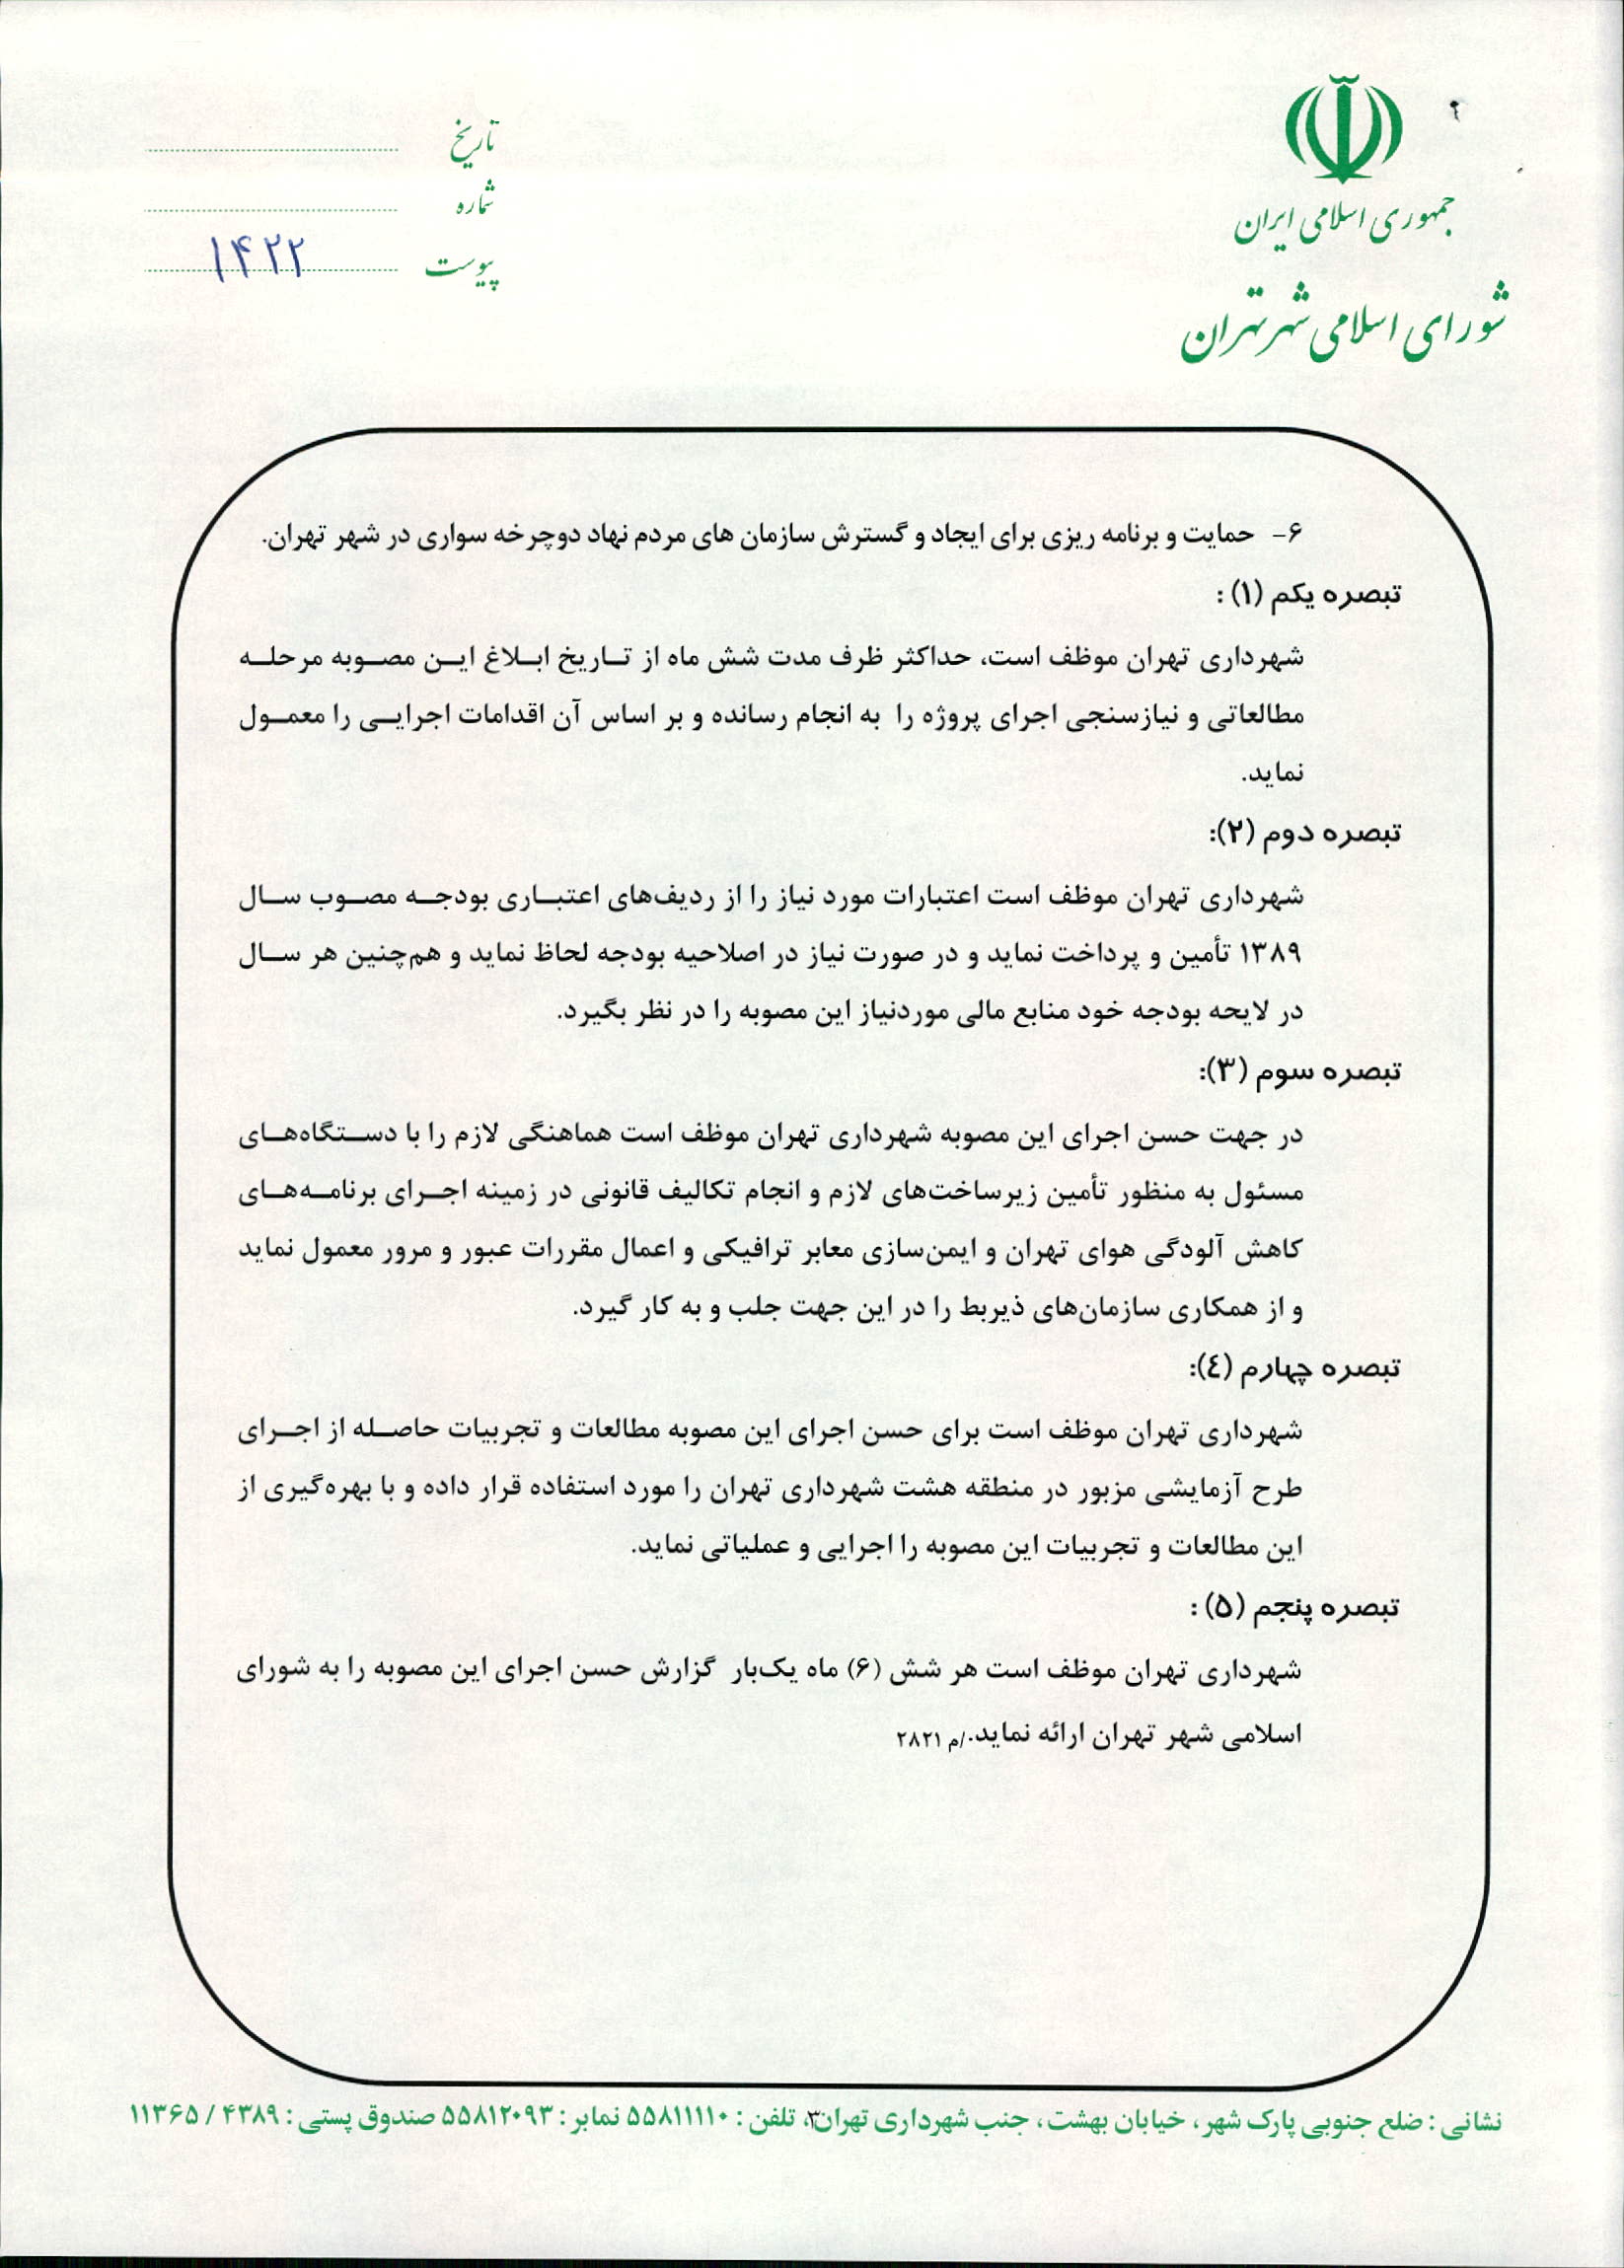 جمهوری اسلامی ایران
شورای اسلامی شهر تهران
تاریخ
شماره
پیوست ۱۴۲۲
۶- حمایت و برنامه ریزی برای ایجاد و گسترش سازمان های مردم نهاد دوچرخه سواری در شهر تهران.
تبصره یکم (۱) :
شهرداری تهران موظف است، حداکثر ظرف مدت شش ماه از تـاریخ ابـلاغ ایـن مصـوبه مرحلـه
مطالعاتی و نیازسنجی اجرای پروژه را به انجام رسانده و بر اساس آن اقدامات اجرایـی را معمـول
نماید.
تبصره دوم (۲):
شهرداری تهران موظف است اعتبارات مورد نیاز را از ردیف‌های اعتبـاری بودجـه مصـوب سـال
۱۳۸۹ تأمین و پرداخت نماید و در صورت نیاز در اصلاحیه بودجه لحاظ نماید و هم‌چنین هر سـال
در لایحه بودجه خود منابع مالی موردنیاز این مصوبه را در نظر بگیرد.
تبصره سوم (۳):
در جهت حسن اجرای این مصوبه شهرداری تهران موظف است هماهنگی لازم را با دسـتگاه‌هـای
مسئول به منظور تأمین زیرساخت‌های لازم و انجام تکالیف قانونی در زمینه اجـرای برنامـه‌هـای
کاهش آلودگی هوای تهران و ایمن‌سازی معابر ترافیکی و اعمال مقررات عبور و مرور معمول نماید
و از همکاری سازمان‌های ذیربط را در این جهت جلب و به کار گیرد.
تبصره چهارم (٤):
شهرداری تهران موظف است برای حسن اجرای این مصوبه مطالعات و تجربیات حاصـله از اجـرای
طرح آزمایشی مزبور در منطقه هشت شهرداری تهران را مورد استفاده قرار داده و با بهره‌گیری از
این مطالعات و تجربیات این مصوبه را اجرایی و عملیاتی نماید.
تبصره پنجم (۵) :
شهرداری تهران موظف است هر شش (۶) ماه یک‌بار گزارش حسن اجرای این مصوبه را به شورای
اسلامی شهر تهران ارائه نماید./م ۲۸۲۱
۳
نشانی : ضلع جنوبی پارک شهر ، خیابان بهشت ، جنب شهرداری تهران، تلفن : ۵۵۸۱۱۱۱۰ نمابر : ۵۵۸۱۲۰۹۳ صندوق پستی : ۴۳۸۹ / ۱۱۳۶۵